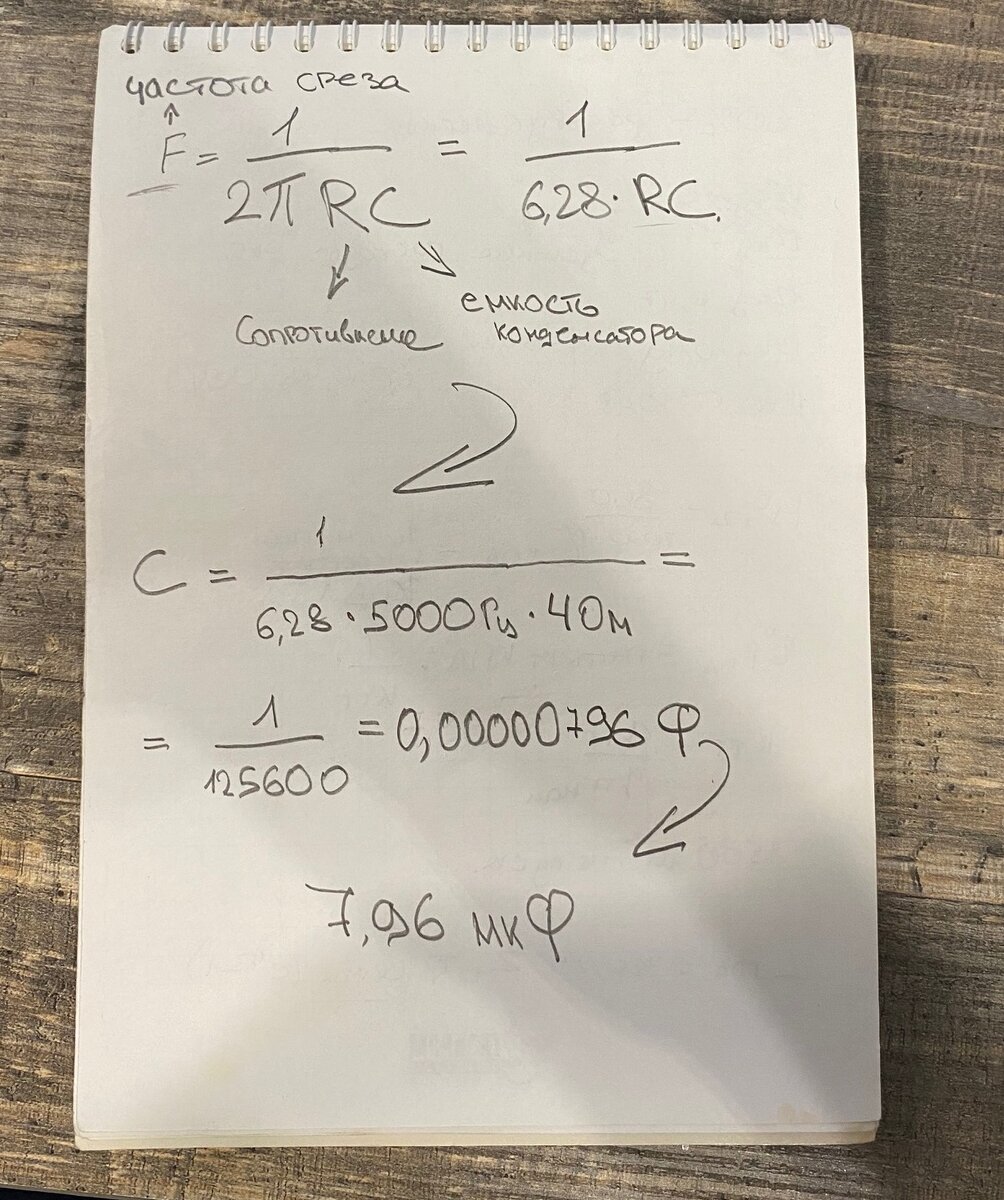 частота среза
F = 1 / 2π RC = 1 / 6,28· RC.
Сопротивление
емкость
конденсатора
C = 1 / 6,28 · 5000Гц · 4Ом =
= 1 / 125600 = 0,00000796 Ф
7,96 мкФ